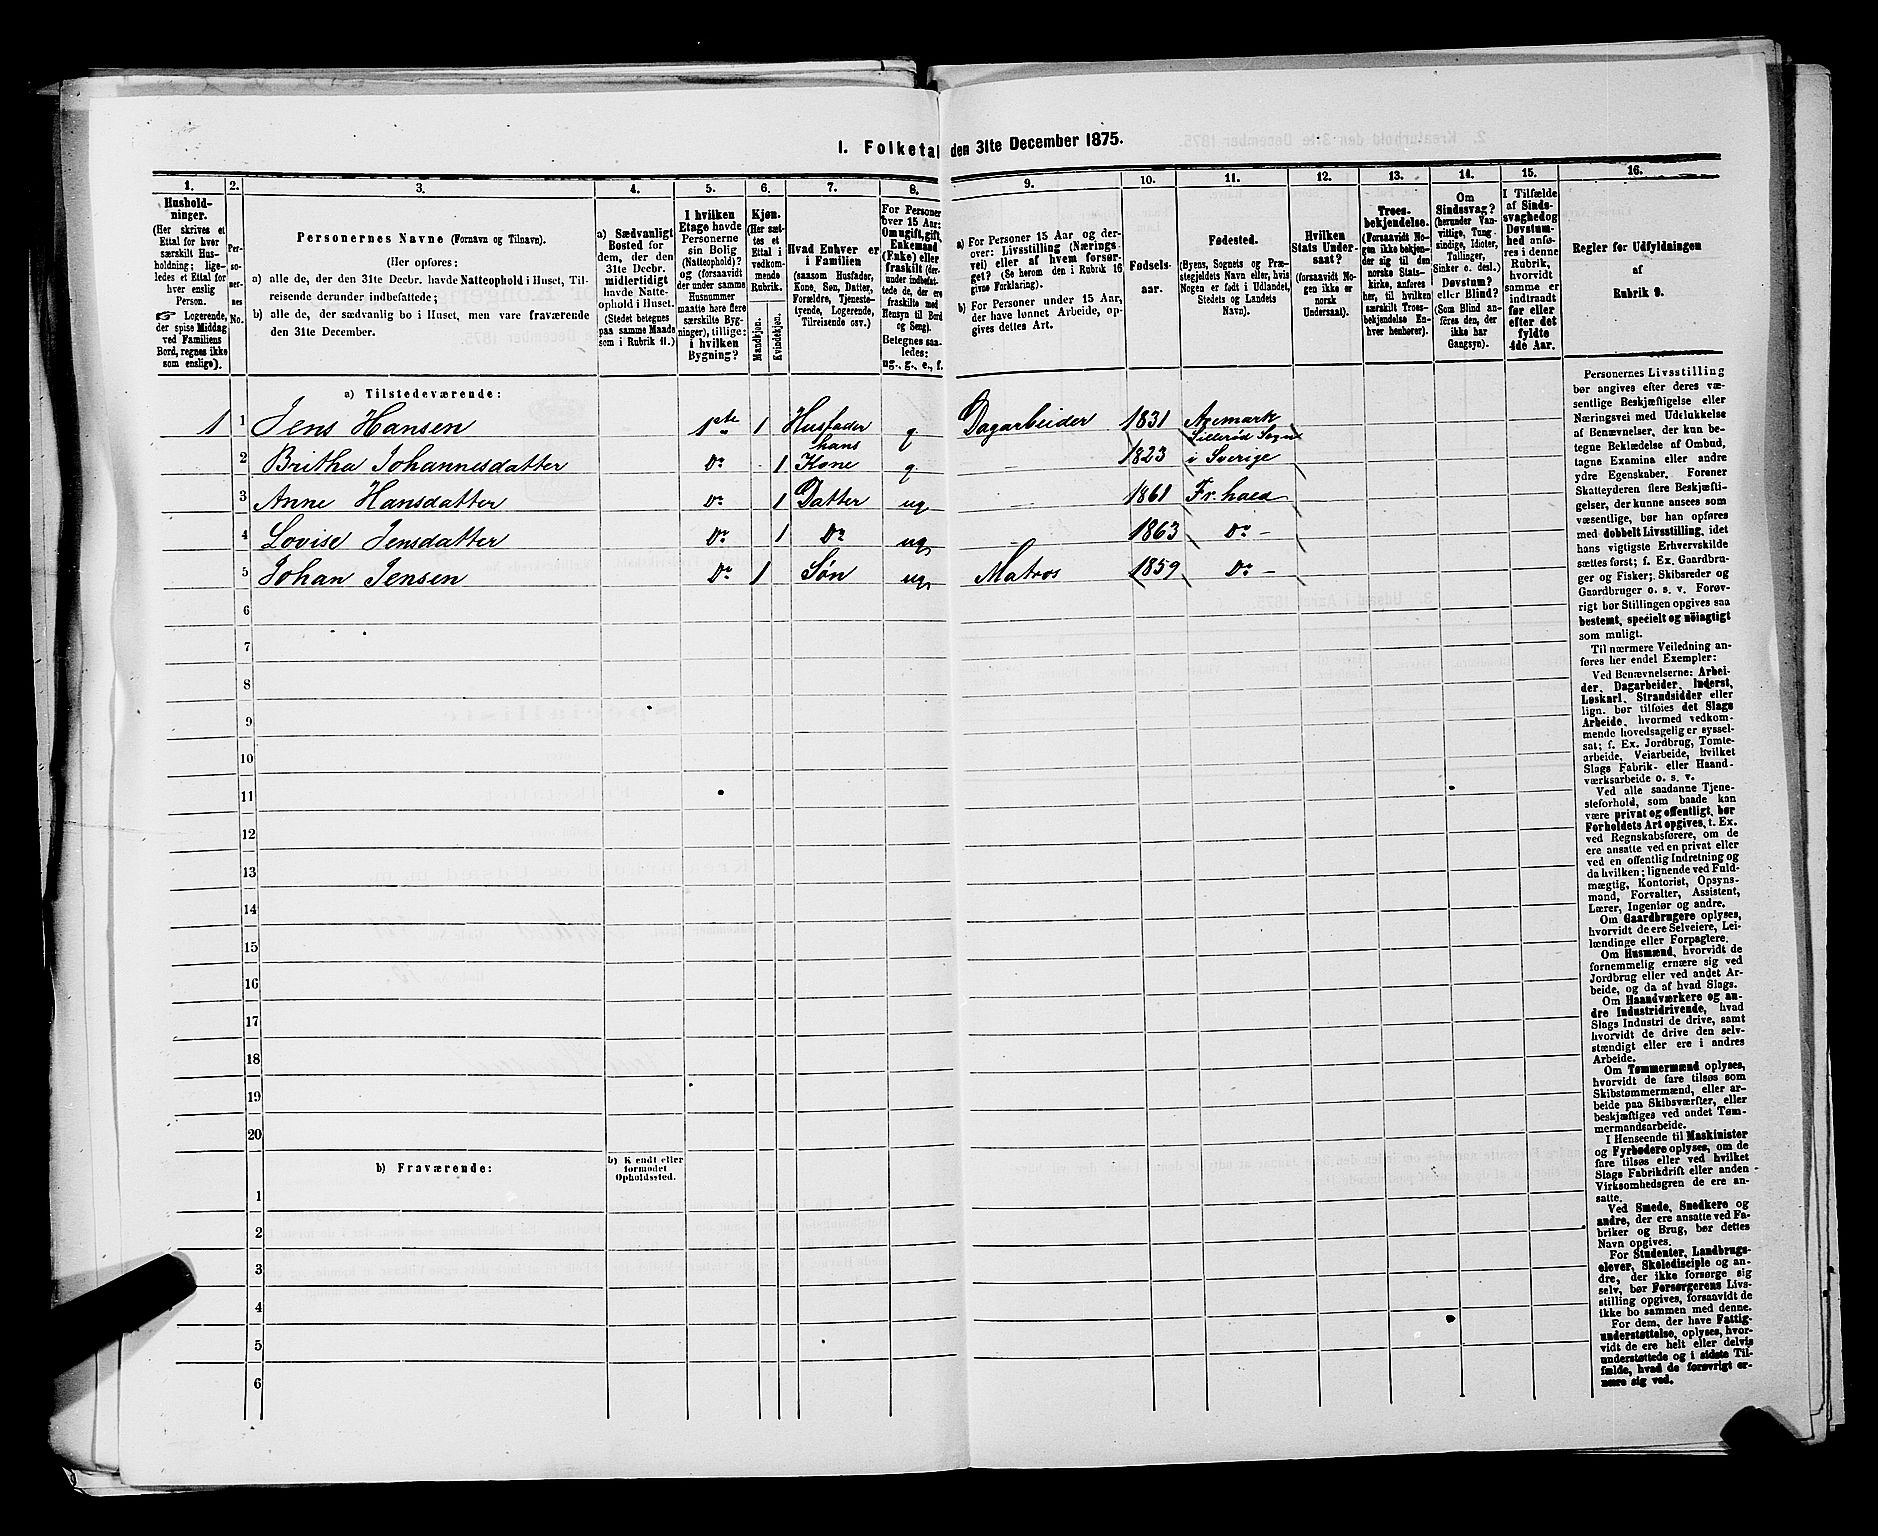 1. Folketal den 31te December 1875.
1.
2.
3.
4.
5.
6.
7.
8.
9.
10.
11.
12.
13.
14.
15.
16.
Hushold-
ninger.
(Her skrives et
Ettal for hver
særskilt Hus-
holdning; lige-
ledes et Ettal for
hver enslig
Person.
☞ Logerende,
der spise Middag
ved Familiens
Bord, regnes ikke
som enslige).
Per-
so-
ner-
nes
No.
Personernes Navne (Fornavn og Tilnavn).
(Her opføres:
a) alle de, der den 31te Decbr. havde Natteophold i Huset, Til-
reisende derunder indbefattede;
b) alle de, der sædvanlig bo i Huset, men vare fraværende
den 31te December.
a) Sædvanligt
Bosted for
dem, der den
31te Decbr.
midlertidigt
havde Natte-
ophold i Huset.
(Stedet betegnes
paa samme Maade
som i Rubrik 11.)
I hvilken
Etage havde
Personerne
sin Bolig
(Natteophold)?
og (forsaavidt
der under samme
Husnummer
maatte høre flere
særskilte Byg-
ninger), tillige:
i hvilken
Bygning?
Kjøn.
(Her sæt-
tes et
Ettal i
vedkom-
mende
Rubrik.
Mandkjøn.
Kvindekjøn.
Hvad Enhver er
i Familien
(saasom Husfader,
Kone, Søn, Datter,
Forældre, Tjeneste-
tyende, Logerende,
Tilreisende osv.)
For Personer
over 15 Aar:
Om ugift, gift,
Enkemand
(Enke) eller
fraskilt (der-
under indbefat-
tede de, der ere
fraskilte med
Hensyn til Bord
og Seng).
Betegnes saa-
ledes:
ug., g., e., f.
a) For Personer 15 Aar og der-
over: Livsstilling (Nærings-
vei) eller af hvem forsør-
get? (Se herom den i Rubrik 16
givne Forklaring).
b) For Personer under 15 Aar,
der have lønnet Arbeide, op-
gives dettes Art.
Fødsels-
aar.
Fødested.
(Byens, Sognets og Præ-
stegjeldets Navn eller, hvis
Nogen er født i Udlandet,
Stedets og Landets
Navn).
Hvilken
Stats Under-
saat?
(forsaavidt No-
gen ikke er
norsk
Undersaat).
Troes-
bekjendelse.
(Forsaavidt No-
gen ikke bekjen-
der sig til den
norske Stats-
kirke, anføres
her, til hvilken
særskilt Troes-
bekjendelse En-
hver henhører).
Om
Sindssvag?
(herunder Van-
vittige, Tung-
sindige, Idioter,
Tullinger,
Sinker o. desl.)
Døvstum?
eller Blind?
(Som Blind an-
føres den, der
ikke har
Gangsyn).
I Tilfælde
af Sinds-
svaghed og
Døvstum-
hed anfø-
res i denne
Rubrik,
hvorvidt
samme er
indtraadt
før eller
efter det
fyldte
4de Aar.
Regler for Udfyldningen
af
Rubrik 9.
a) Tilstedeværende:
1 1 Jens Hansen 1ste 1 Husfader g Dagarbeider 1831 Aremark
2 Britha Johannesdatter Do 1 hans Kone g — 1823 Lillerød Sogn i Sverige
3 Anne Hansdatter Do 1 Datter ug — 1861 Fr.hald
4 Lovise Jensdatter Do 1 Do ug — 1863 Do —
5 Johan Jensen Do 1 Søn ug Matros 1859 Do —
6
7
8
9
10
11
12
13
14
15
16
17
18
19
20
b) Fraværende:
b) Kjendt eller
formodet
Opholdssted.
1
2
3
4
5
6
Personernes Livsstilling
bør angives efter deres væ-
sentlige Beskjæftigelse eller
Næringsvei med Udelukkelse
af Benævnelser, der kun be-
tegne Beklædelse af Ombud,
tagne Examina eller andre
ydre Egenskaber. Forener
Skatteyderen flere Beskjæfti-
gelser, der kunne ansees som
væsentlige, bør han opføres
med dobbelt Livsstilling, idet
hans vigtigste Erhvervskilde
sættes først; f. Ex. Gaardbru-
ger og Fisker; Skibsreder og
Gaardbruger o. s. v. Forøv-
rigt bør Stillingen opgives saa
bestemt, specielt og nöiagtigt
som muligt.
Til nærmere Veiledning an-
føres her endel Exempler:
Ved Benævnelserne: Arbei-
der, Dagarbeider, Inderst,
Løskarl, Strandsidder eller
lign. bør tilføies det Slags
Arbeide, hvormed vedkom-
mende hovedsagelig er syssel-
sat; f. Ex. Jordbrug, Tomte-
arbeide, Veiarbeide, hvilket
Slags Fabrik- eller Haand-
værksarbeide o. s. v.
Ved alle saadanne Tjene-
steforhold, som baade kan
være privat og offentligt, bør
Forholdets Art opgives, t. Ex.
ved Regnskabsførere, om de
ere ansatte ved en privat eller
ved en offentlig Indretning og
da hvilken; lignende ved Fuld-
mægtig, Kontorist, Opsyns-
mand, Forvalter, Assistent,
Lærer, Ingeniør og andre.
Om Gaardbrugere oplyses,
hvorvidt de ere Selveiere, Lei-
lændinge eller Forpagtere.
Om Husmænd, hvorvidt de
fornemmelig ernære sig ved
Jordbrug eller ved andet Ar-
beide, og da af hvad Slags.
Om Haandværkere og an-
dre Industridrivende, hvad
Slags Industri de drive, samt
hvorvidt de drive den selv-
stændigt eller ere i andres
Arbeide.
Om Tømmermænd oplyses,
hvorvidt de fare tilsøs som
Skibstømmermænd, eller ar-
beide paa Skibsværfter, eller
beskjæftiges ved andet Tøm-
mermandsarbeide.
I Henseende til Maskinister
og Fyrbødere oplyses, om de
fare tilsøs eller ved hvilket
Slags Fabrikdrift eller anden
Virksomhedsgren de ere an-
satte.
Ved Smede, Snedkere og
andre, der ere ansatte ved Fa-
briker og Brug, bør dettes
Navn opgives.
For Studenter, Landbrugs-
elever, Skoledisciple og an-
dre, der ikke forsørge sig
selv, bør Forsørgerens Livs-
stilling opgives, forsaavidt de
ikke bo sammen med denne.
For dem, der have Fattig-
understøttelse, oplyses, hvor-
vidt de ere helt eller delvis
understøttede og i sidste Til-
fælde, hvad de forøvrigt er-
nære sig ved.